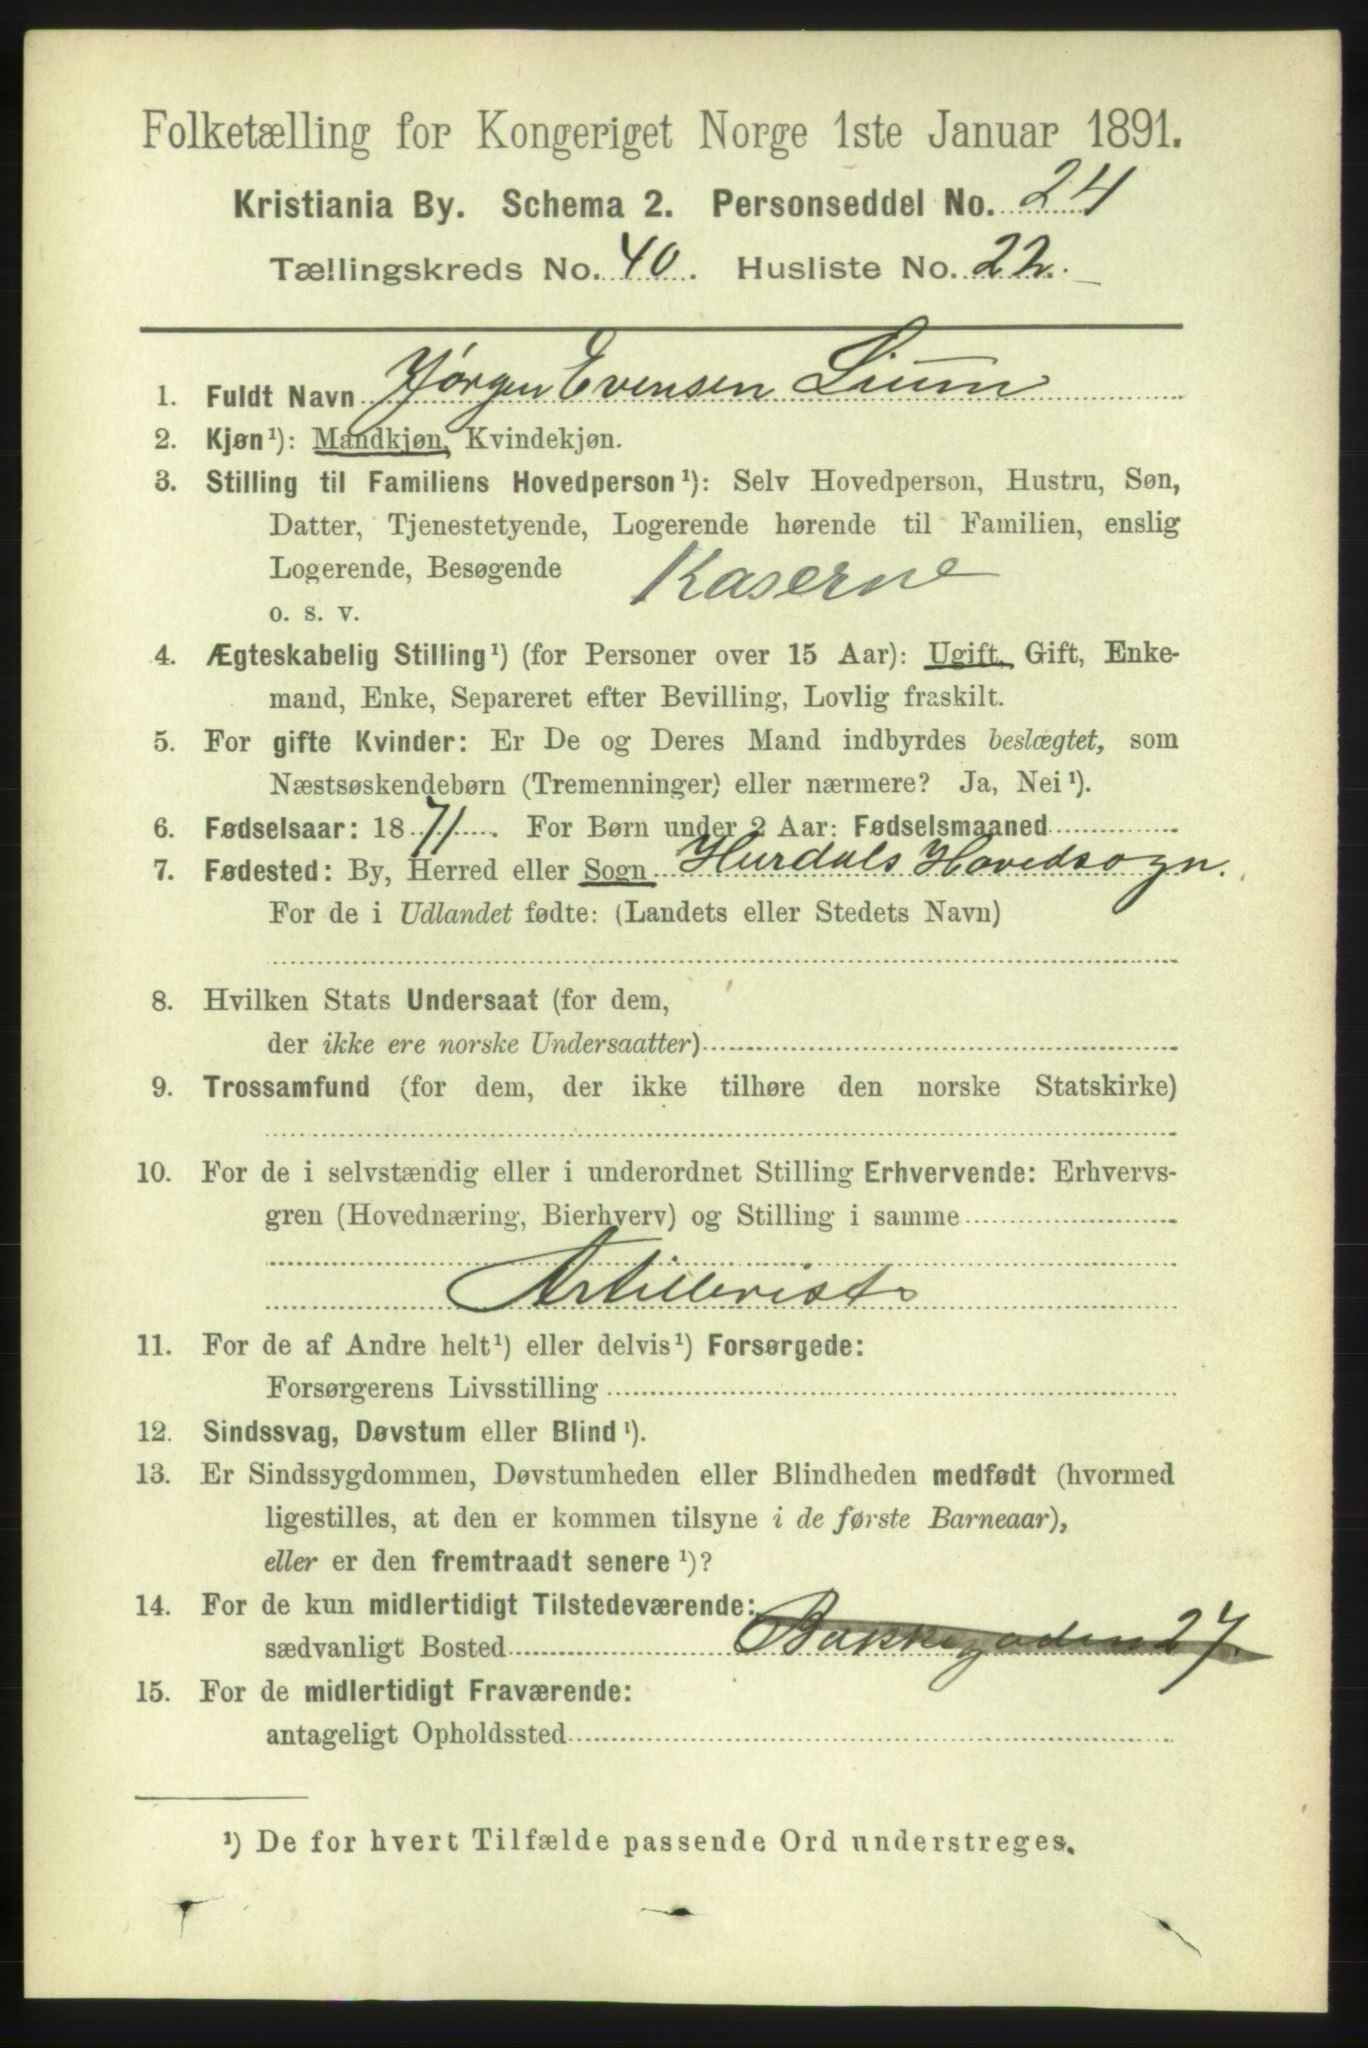 Folketælling for Kongeriget Norge 1ste Januar 1891.
Kristiania By. Schema 2. Personseddel No. 24
Tællingskreds No. 40. Husliste No. 22.
1. Fuldt Navn Jörgen Evensen Lium
2. Kjøn¹): Mandkjøn, Kvindekjøn.
3. Stilling til Familiens Hovedperson¹): Selv Hovedperson, Hustru, Søn,
Datter, Tjenestetyende, Logerende hørende til Familien, enslig
Logerende, Besøgende Kaserne
o. s. v.
4. Ægteskabelig Stilling¹) (for Personer over 15 Aar): Ugift, Gift, Enke-
mand, Enke, Separeret efter Bevilling, Lovlig fraskilt.
5. For gifte Kvinder: Er De og Deres Mand indbyrdes beslægtet, som
Næstsøskendebørn (Tremenninger) eller nærmere? Ja, Nei¹).
6. Fødselsaar: 1871. For Børn under 2 Aar: Fødselsmaaned
7. Fødested: By, Herred eller Sogn Hurdals Hovedsogn.
For de i Udlandet fødte: (Landets eller Stedets Navn)
8. Hvilken Stats Undersaat (for dem,
der ikke ere norske Undersaatter)
9. Trossamfund (for dem, der ikke tilhøre den norske Statskirke)
10. For de i selvstændig eller i underordnet Stilling Erhvervende: Erhvervs-
gren (Hovednæring, Bierhverv) og Stilling i samme
Artillerist
11. For de af Andre helt¹) eller delvis¹) Forsørgede:
Forsørgerens Livsstilling
12. Sindssvag, Døvstum eller Blind¹).
13. Er Sindssygdommen, Døvstumheden eller Blindheden medfødt (hvormed
ligestilles, at den er kommen tilsyne i de første Barneaar),
eller er den fremtraadt senere¹)?
14. For de kun midlertidigt Tilstedeværende:
sædvanligt Bosted Bakkegaden 27.
15. For de midlertidigt Fraværende:
antageligt Opholdssted
¹) De for hvert Tilfælde passende Ord understreges.